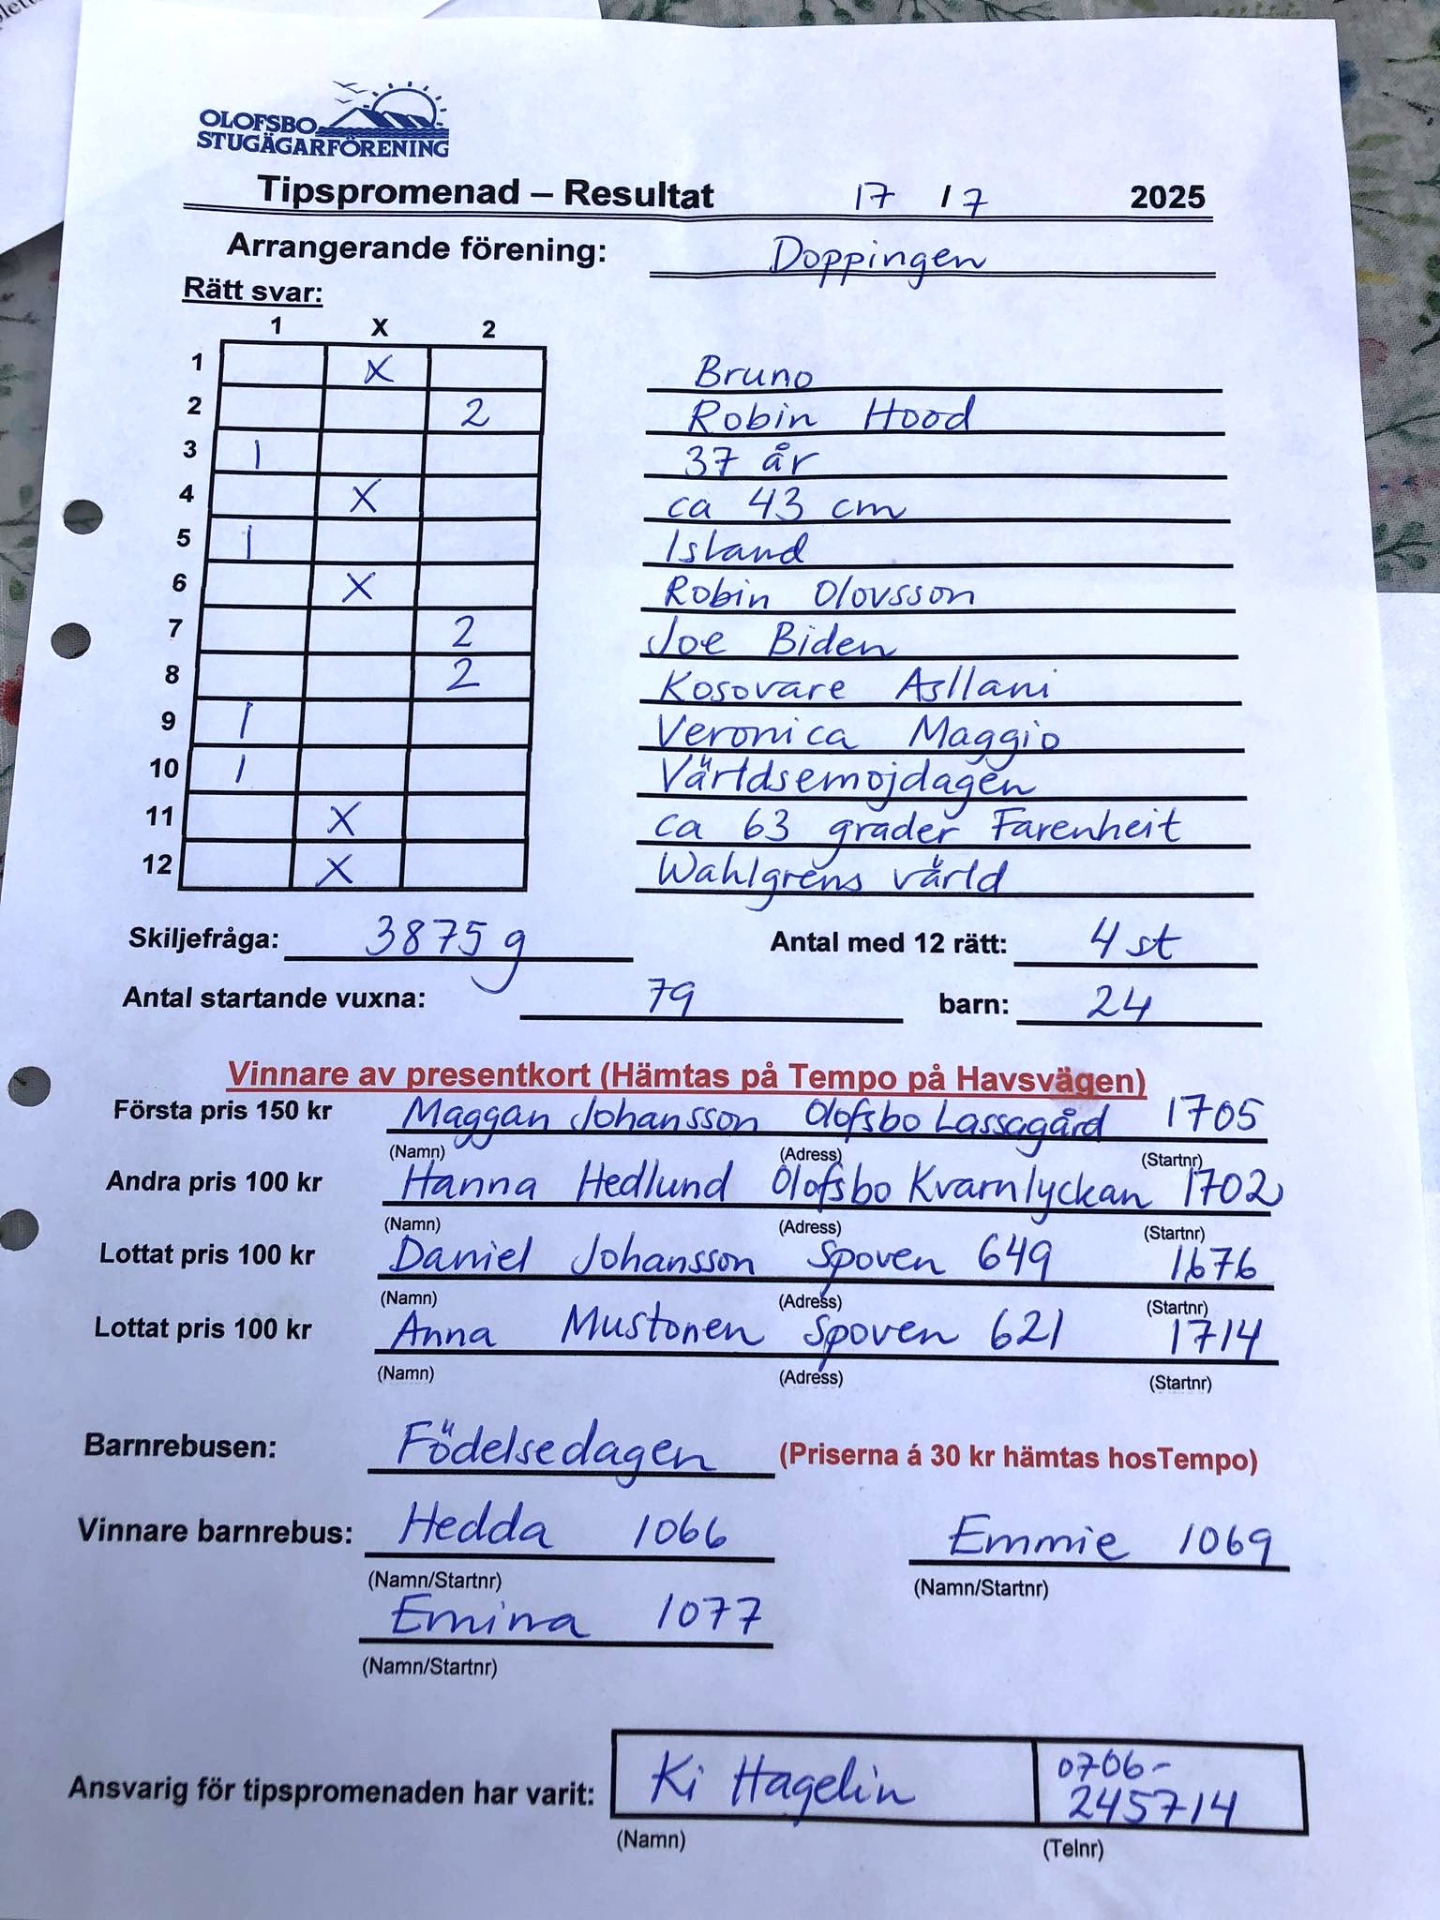 OLOFSBO
STUGÄGARFÖRENING
Tipspromenad – Resultat 17 / 7 2025
Arrangerande förening: Doppingen
Rätt svar:
1 X 2
1 X Bruno
2 2 Robin Hood
3 1 37 år
4 X ca 43 cm
5 1 Island
6 X Robin Olovsson
7 2 Joe Biden
8 2 Kosovare Asllani
9 1 Veronica Maggio
10 1 Världsemojdagen
11 X ca 63 grader Farenheit
12 X Wahlgrens värld
Skiljefråga: 3875 g Antal med 12 rätt: 4 st
Antal startande vuxna: 79 barn: 24
Vinnare av presentkort (Hämtas på Tempo på Havsvägen)
Första pris 150 kr Maggan Johansson Olofsbo Lassagård 1705
(Namn) (Adress) (Startnr)
Andra pris 100 kr Hanna Hedlund Olofsbo Kvarnlyckan 1702
(Namn) (Adress) (Startnr)
Lottat pris 100 kr Daniel Johansson Spoven 649 1676
(Namn) (Adress) (Startnr)
Lottat pris 100 kr Anna Mustonen Spoven 621 1714
(Namn) (Adress) (Startnr)
Barnrebusen: Födelsedagen (Priserna á 30 kr hämtas hosTempo)
Vinnare barnrebus: Hedda 1066 Emmie 1069
(Namn/Startnr) (Namn/Startnr)
1077
(Namn/Startnr)
Ansvarig för tipspromenaden har varit: Ki Hagelin 0706-
245714
(Namn) (Telnr)